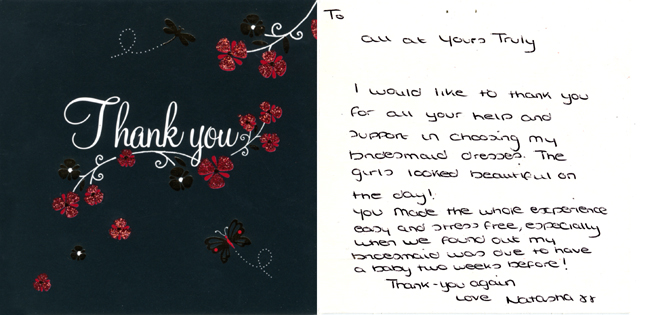 Thank you
To
all at Yours Truly
I would like to thank you
for all your help and
support in choosing my
bridesmaid dresses. The
girls looked beautiful on
the day!
You made the whole experience
easy and stress free, especially
when we found out my
bridesmaid was due to have
a baby two weeks before!
Thank-you again
Love Natasha xx